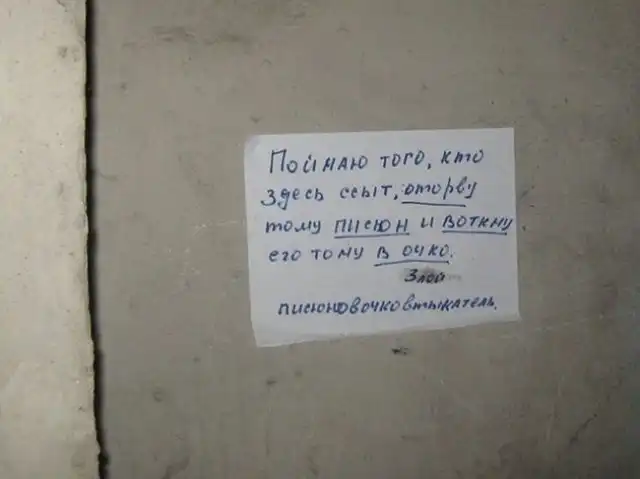 Поймаю того, кто
здесь ссыт, оторву
тому писюн и воткну
его тому в очко.
Злой
писюновочковтыкатель.